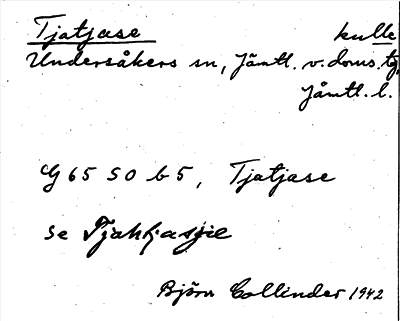 Tjatjase kulle
Undersåkers sn, Jämtl. v. doms. tg,
Jämtl. l.
G 65 S O b 5, Tjatjase
se
Björn Collinder 1942